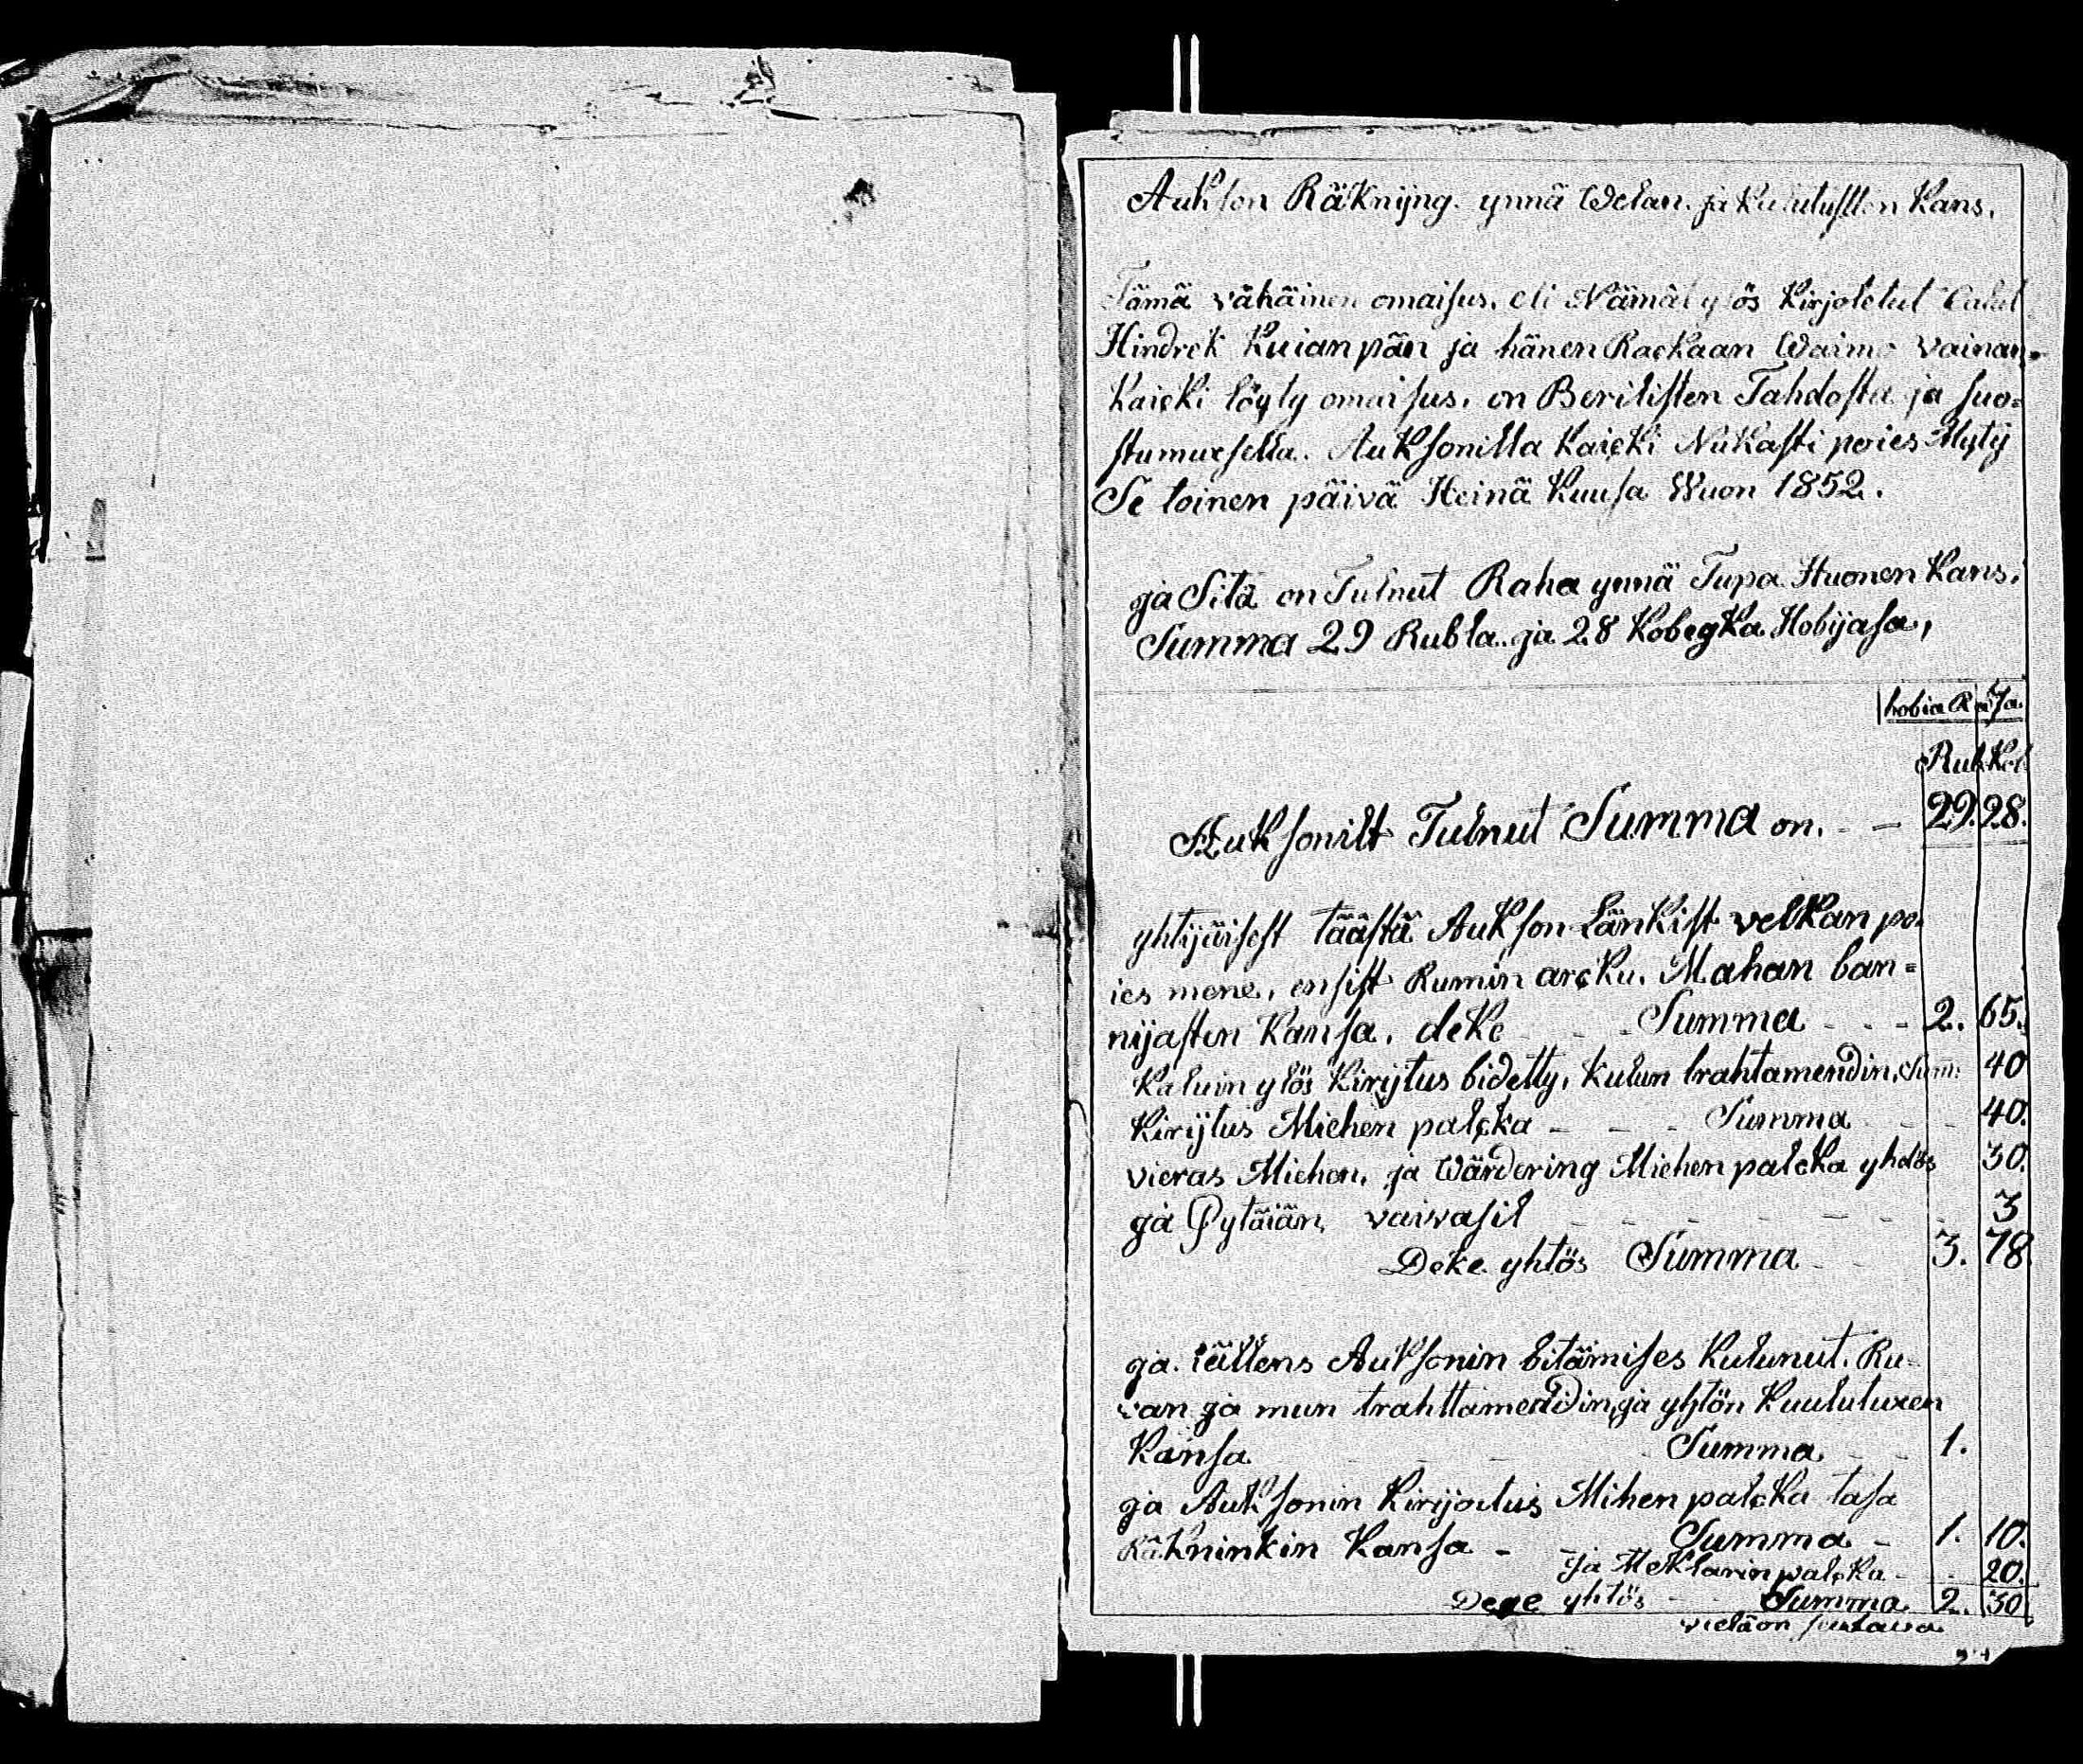 Aukson Räknyng. ynnä Welan. ja kulutusten kans.
Tämä vähäinen omaisus. eli Nämät ylös kirjotetut Calut
Hindrek Kuianpän ja hänen Rackaan Waimo vainan.
kaicki löyty omaisus. on Perilisten Tahdosta ja suo=
stumuxsella. Auksonilla kaicki Nukasti poies Myty
Se toinen päivä Heinä kuusa Wuon 1852.
ja Sitä on Tulnut Raha ynnä Tupa Huonen kans.
Summa 29 Rubla. ja 28 kobegka Hobijasa,
hobia Rasa.
Rub. Kob.
Auksonilt Tulnut Summa on. - - 29. 28.
yhtijäisest täästä Aukson Länkist velkan po-
ies mene, ensist Rumin arcku. Mahan ban=
nijasten kansa. deke - - Summa - - - 2. 65.
kaluin ylös kirijtus bidetty, kulun trahtamendin, Sum: 40
kirijtus Miehen palcka - - - Summa - - 40.
vieras Miehen, ja Wärdering Miehen palcka yhdös 30.
ja Pytäiän, vaivasil - - - - - - - 3
Deke yhtös Summa - - 3. 78
ja. tällens Auksonin bitämises kulunut. Ru=
van ja mun trahttamendin, ja yhtön kuulutuxen
kansa - - - - Summa - - 1.
ja Auksonin kirijoitus Mihen palcka tasa
Räkninkin kansa - - Summa - 1. 10.
ja Meklarin palcka - - 20.
Dege yhtös - - Summa 2. 30
vielä on